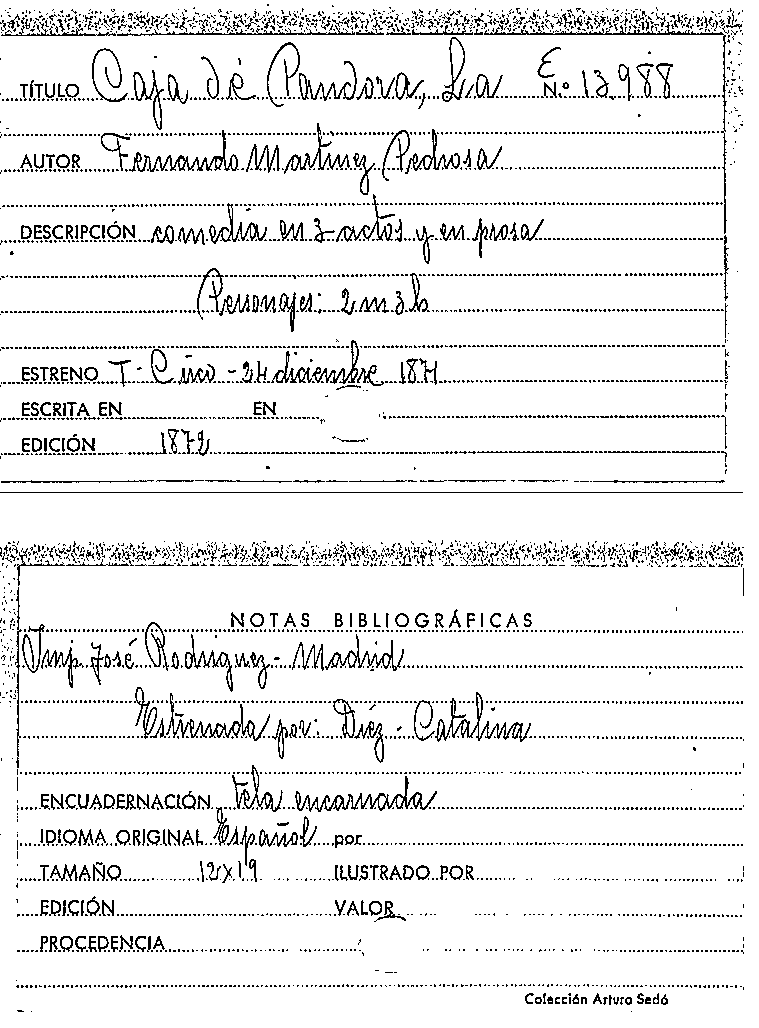 TÍTULO Caja de Pandora, La E N.º 13.988
AUTOR Fernando Martínez Pedrosa
DESCRIPCIÓN comedia en 3 actos y en prosa
Personajes: 2 m 3 h
ESTRENO T. Circo - 24 diciembre 1871
ESCRITA EN EN
EDICIÓN 1872
NOTAS BIBLIOGRÁFICAS
Imp. José Rodriguez - Madrid
Estrenada por: Diéz - Catalina
ENCUADERNACIÓN tela encarnada
IDIOMA ORIGINAL Español por
TAMAÑO 12x19 ILUSTRADO POR
EDICIÓN VALOR
PROCEDENCIA
Colección Arturo Sedó